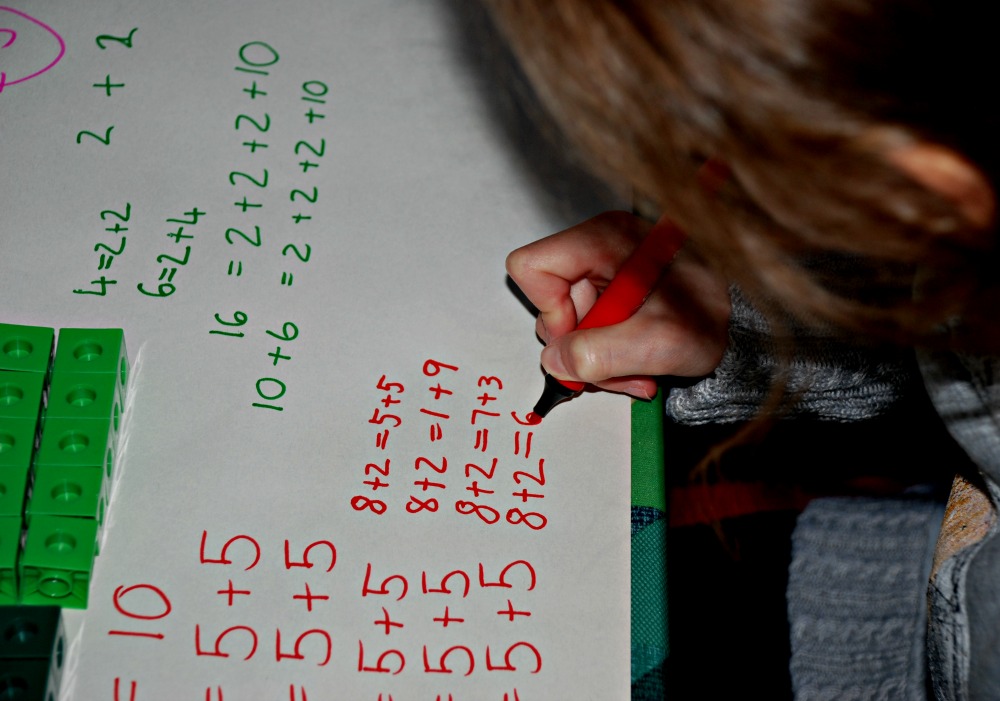 4=2+2 2 + 2
6=2+4
16 = 2+2+2+10
10+6 = 2+2+2+10
= 10
= 5+5
= 5+5
= 5+5
= 5+5
= 5+5
8+2=5+5
8+2=1+9
8+2=7+3
8+2=6